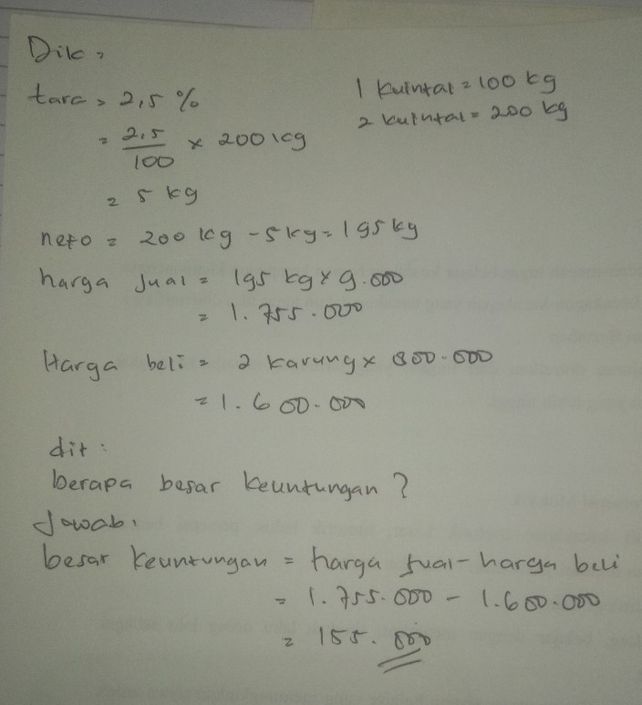 Dik :
tara = 2,5 %
1 kuintal = 100 kg
2 kuintal = 200 kg
= 2,5/100 x 200 kg
= 5 kg
neto = 200 kg - 5 kg = 195 kg
harga jual = 195 kg x 9.000
= 1.755.000
Harga beli = 2 karung x 800.000
= 1.600.000
dit :
berapa besar keuntungan ?
Jawab :
besar keuntungan = harga jual - harga beli
= 1.755.000 - 1.600.000
= 155.000